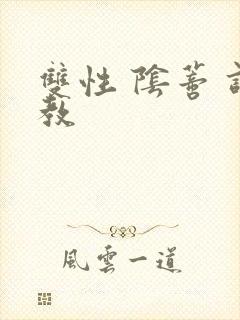 雙性 陰蒂
教
風雲一道